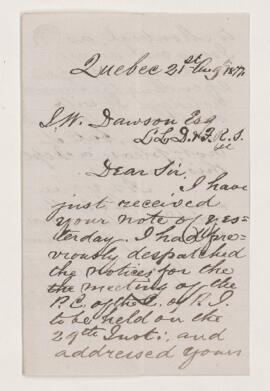 Quebec 21st Aug 1877
J. W. Dawson Esq
LL.D. & F.R.S.
&c
Dear Sir,
I have
just received
your note of yes-
terday. I had pre-
viously despatched
the notices for the
the meeting of the
P.C. of the C. of P.I.
to be held on the
29th Inst:, and
addressed yours